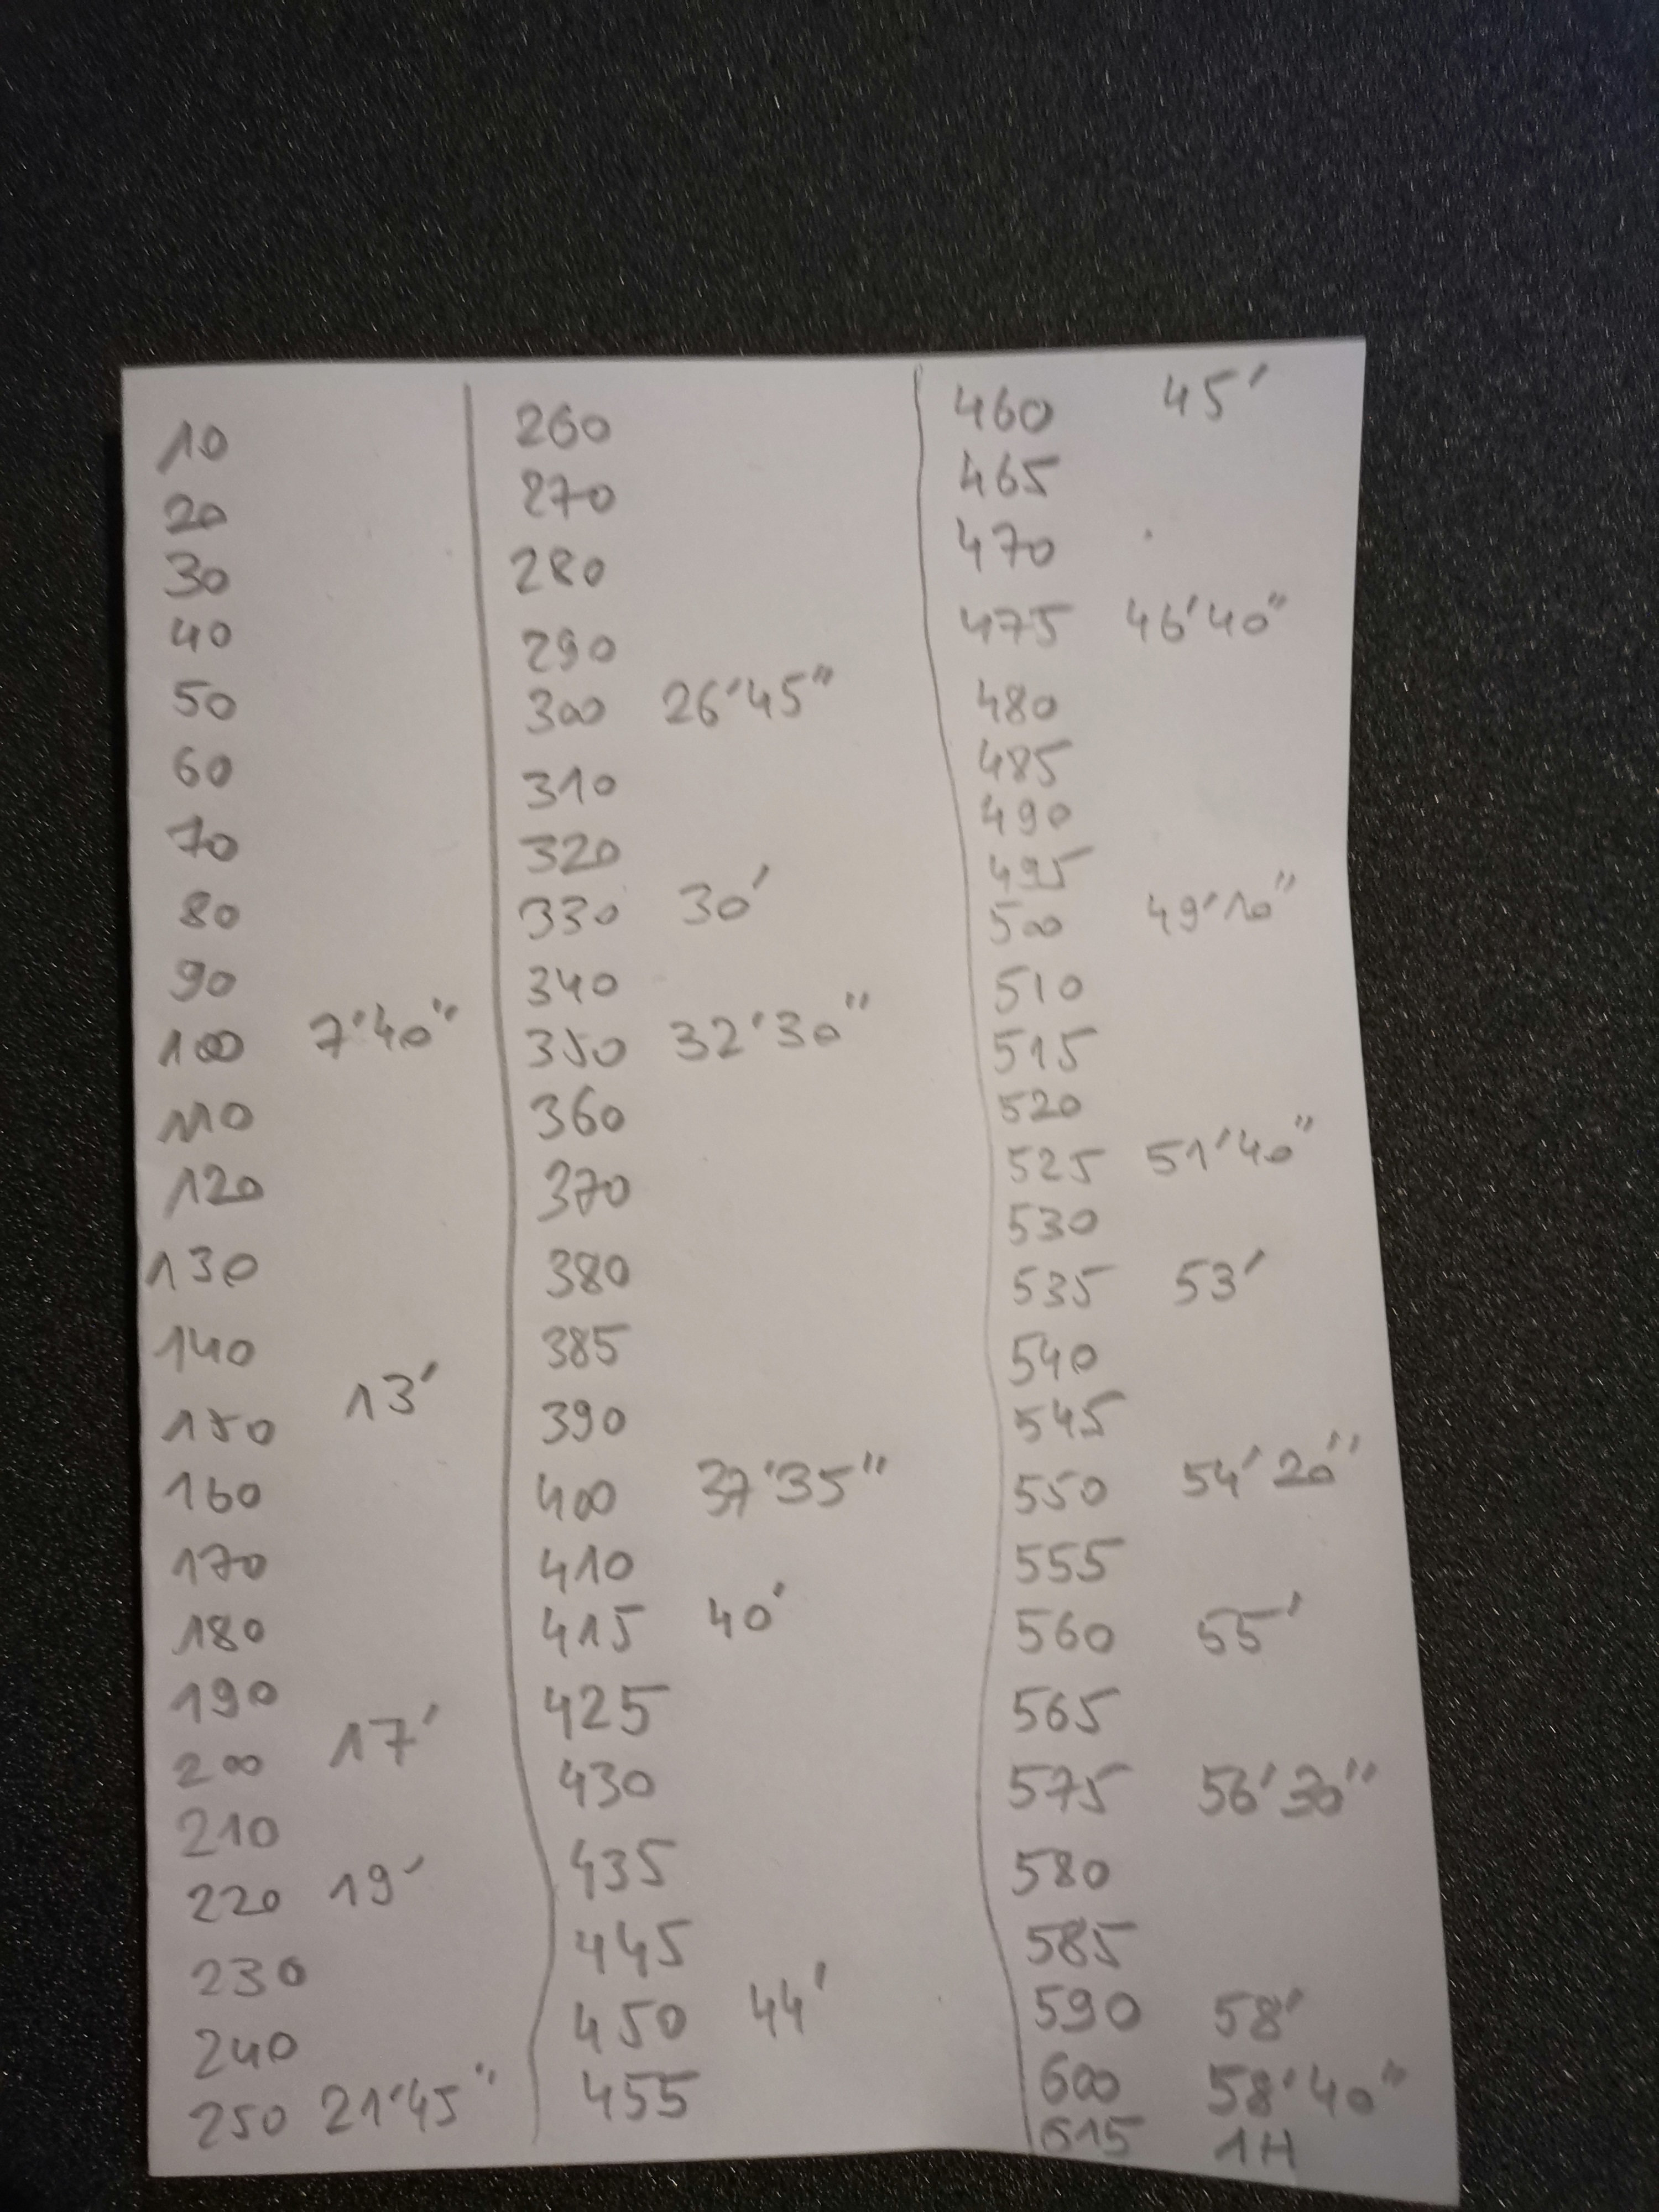 10
20
30
40
50
60
70
80
90
100 7'40"
110
120
130
140
150 13'
160
170
180
190
200 17'
210
220 19'
230
240
250 21'45"
260
270
280
290
300 26'45"
310
320
330 30'
340
350 32'30"
360
370
380
385
390
400 37'35"
410
415 40'
425
430
435
445
450 44'
455
460 45'
465
470
475 46'40"
480
485
490
495
500 49'10"
510
515
520
525 51'40"
530
535 53'
540
545
550 54'20"
555
560 55'
565
575 56'30"
580
585
590 58'
600 58'40"
615 1H